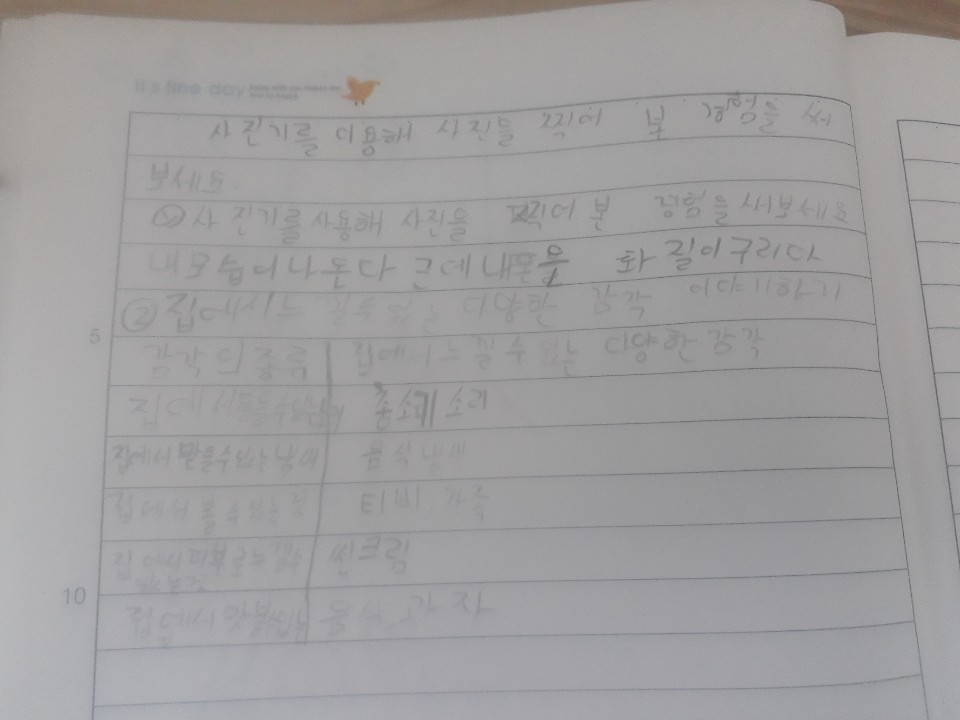 it's fine day
사진기를 이용해 사진을 찍어 본 경험을 써
보세요
① 사진기를 사용해 사진을 찍어 본 경험을 써보세요
내모습이나돈다 근데내몬을 화질이구리다
② 집에서 느낄수 있는 다양한 감각 이야기하기
5
감각의 종류 집에서 느낄수 있는 다양한 감각
집에서 들을수있는 소리
집에서 맡을수있는냄새 음식냄새
집에서 볼수있는 것 티비 가족
집에서 피부로느낄수 썬크림
10
집에서 음식 과자